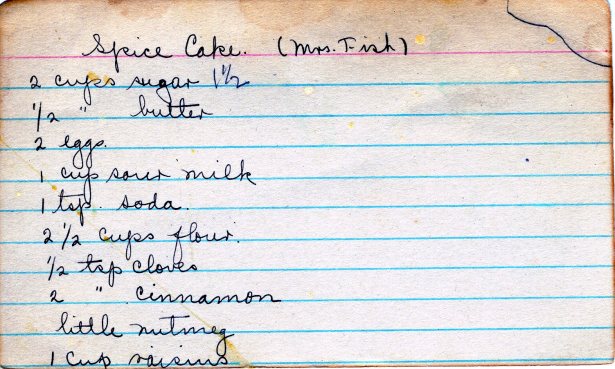 Spice Cake. (Mrs. Fish)
2 cups sugar 1 1/2
1/2 " butter
2 eggs.
1 cup sour milk
1 tsp. soda.
2 1/2 cups flour.
1/2 tsp cloves
2 " cinnamon
little nutmeg
1 cup raisins